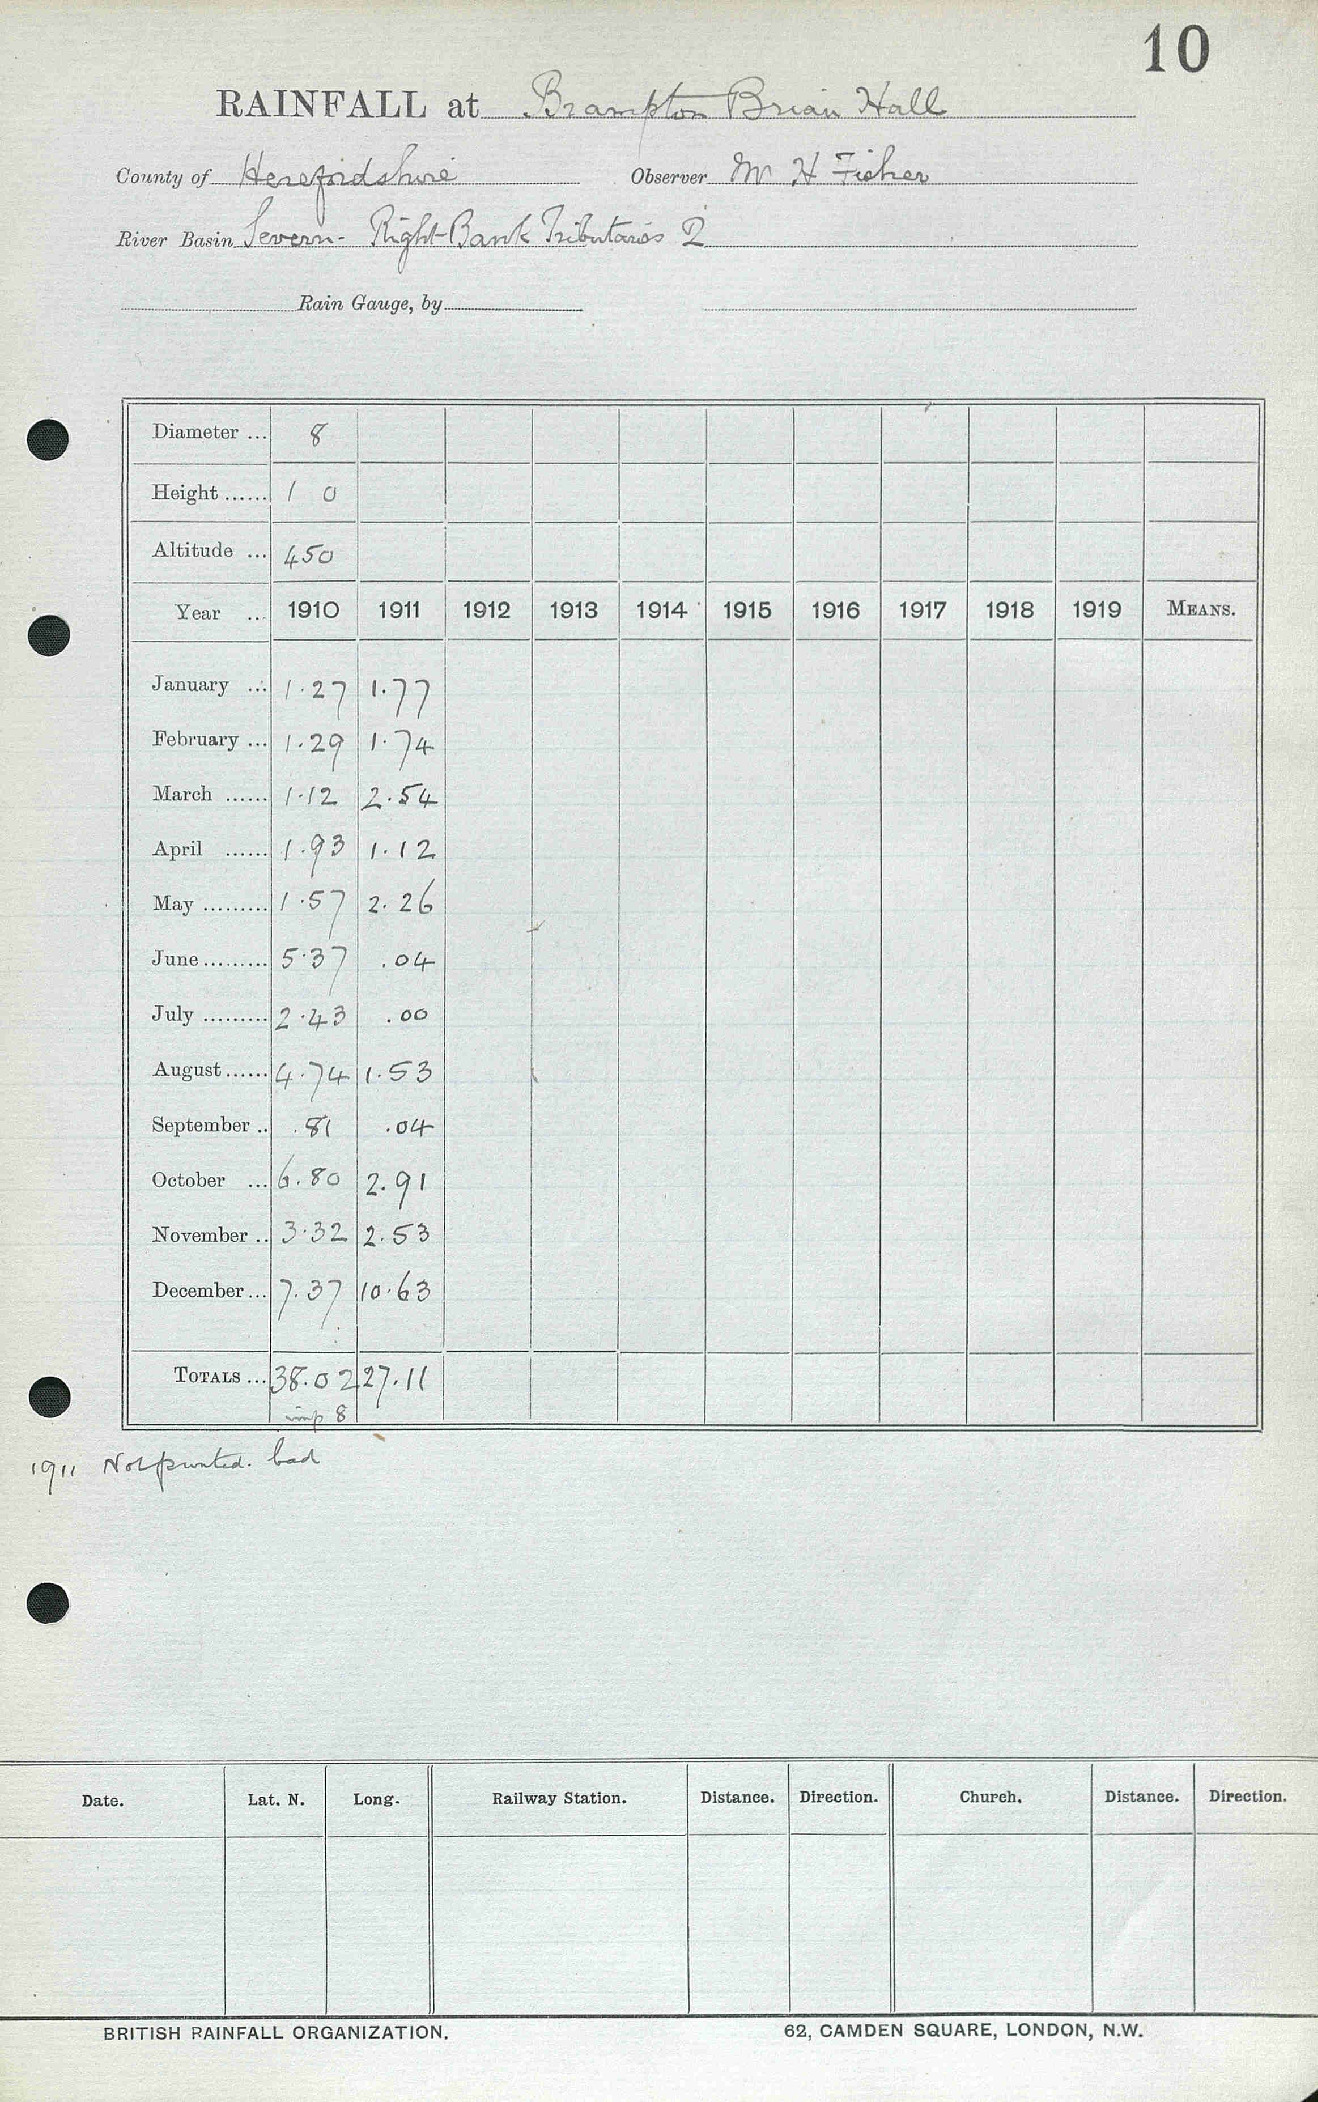 10
RAINFALL at Brampton Brian Hall
County of Herefordshire Observer Mr H Fisher
River Basin Severn - Right Bank Tributaries 2
Rain Gauge, by
Diameter ... 8
Height ...... 1 0
Altitude ... 450
Year ... 1910 1911 1912 1913 1914 1915 1916 1917 1918 1919 MEANS.
January ... 1.27 1.77
February ... 1.29 1.74
March ...... 1.12 2.54
April ...... 1.93 1.12
May ......... 1.57 2.26
June ......... 5.37 .04
July ......... 2.43 .00
August ...... 4.74 1.53
September .. .81 .04
October ... 6.80 2.91
November .. 3.32 2.53
December ... 7.37 10.63
TOTALS ... 38.02 27.11
imp 8
1911 Not printed. bad
Date. Lat. N. Long. Railway Station. Distance. Direction. Church. Distance. Direction.
BRITISH RAINFALL ORGANIZATION. 62, CAMDEN SQUARE, LONDON, N.W.